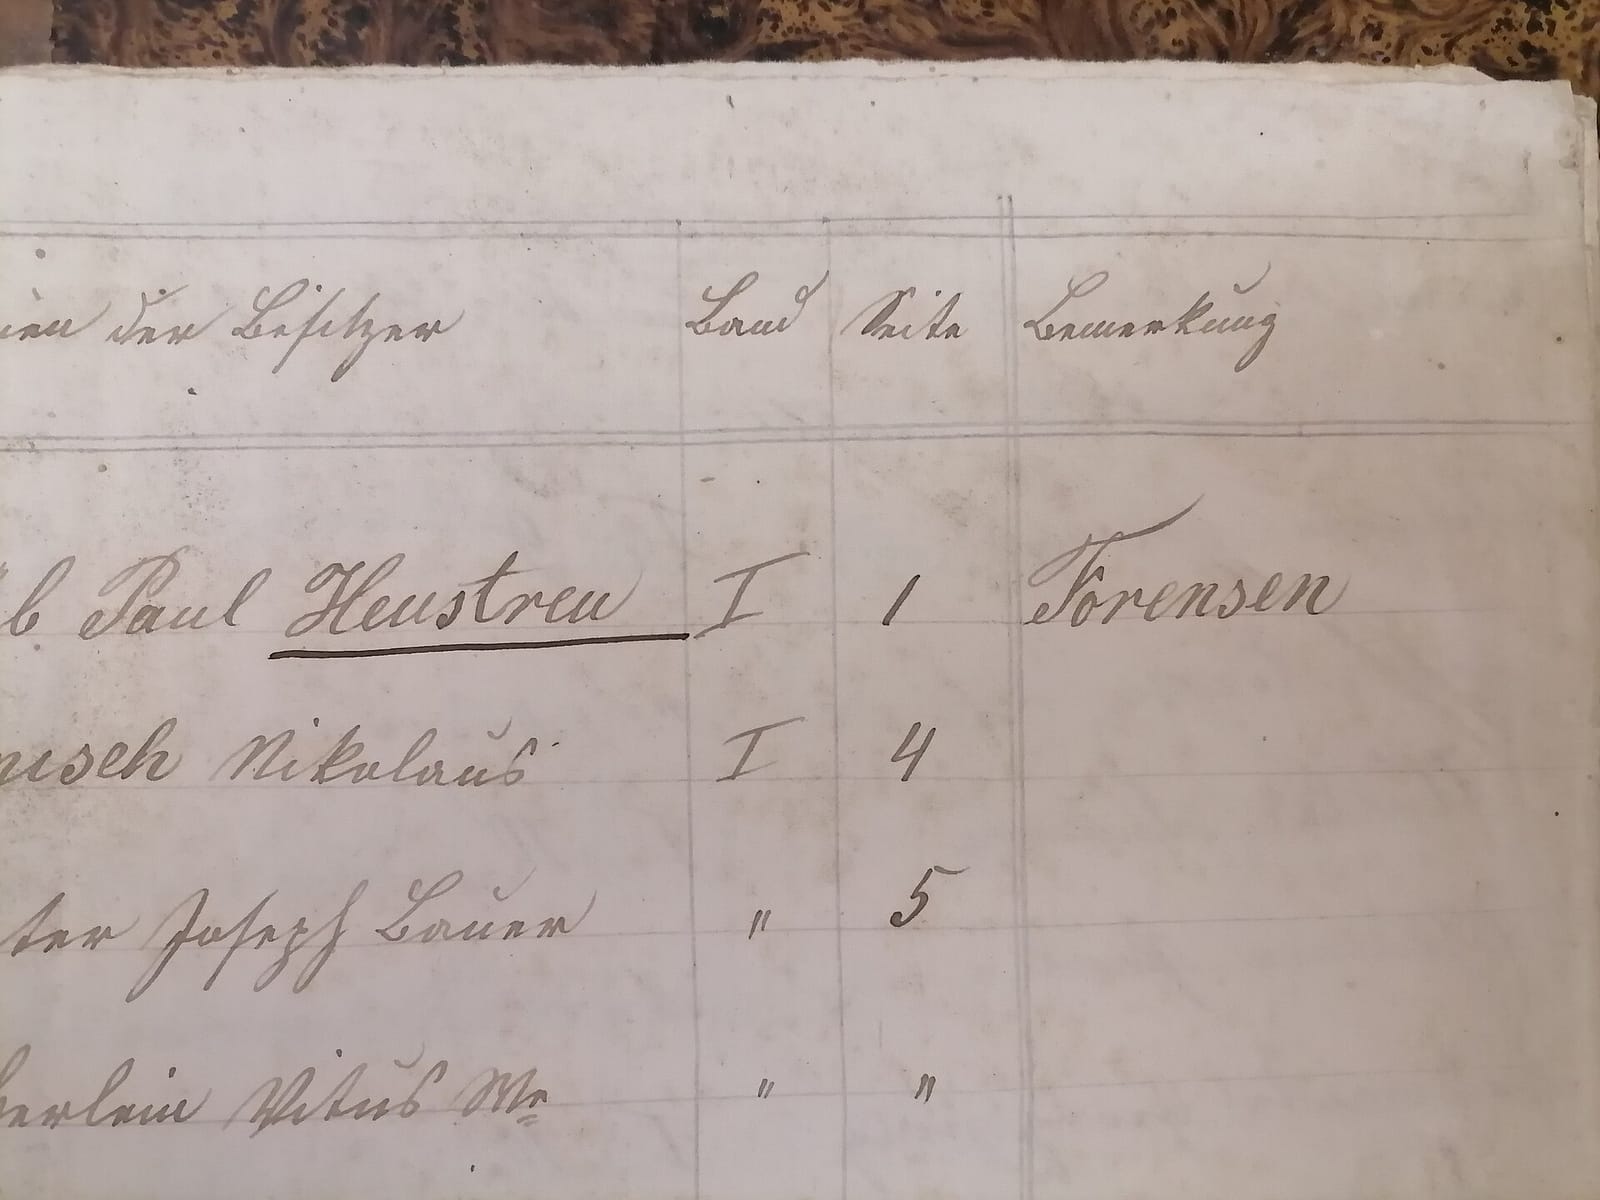 der Besitzer Band Seite Bemerkung
b Paul Heustreu I 1 Forensen
Nikolaus I 4
ter Joseph Bauer " 5
erlein Vitus We " "